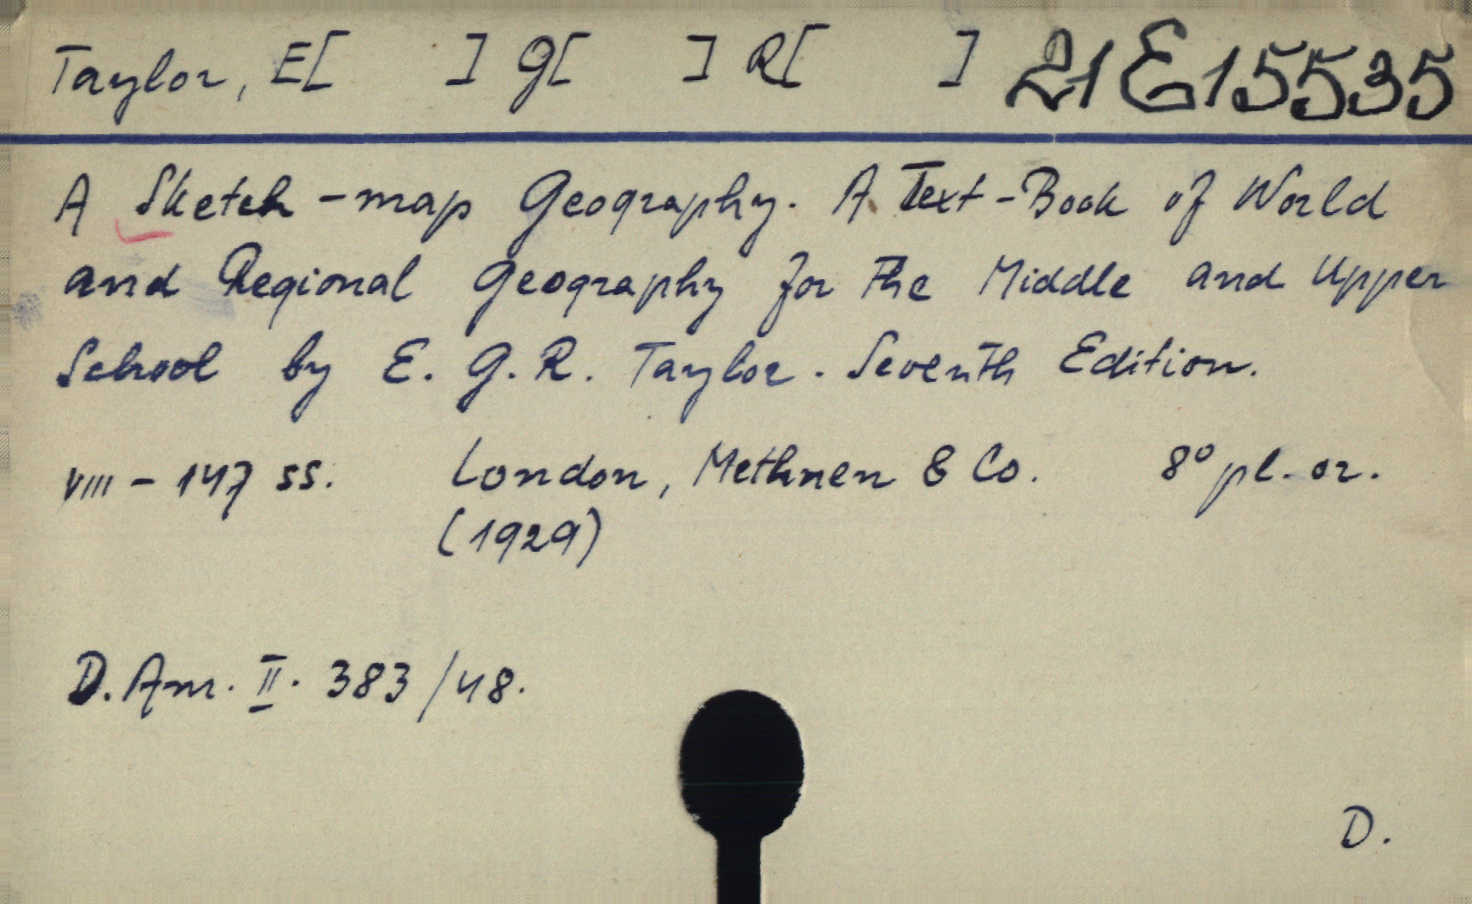 Taylor, E[ ] G[ ] R[ ] 21E15535
A Sketch-map Geography. A Text-Book of World
and Regional Geography for the Middle and Upper
School by E. G. R. Taylor. Seventh Edition.
VIII - 147 ss. London, Methuen & Co. 8° pl. or.
(1929)
D. Am. II. 383/48.
D.